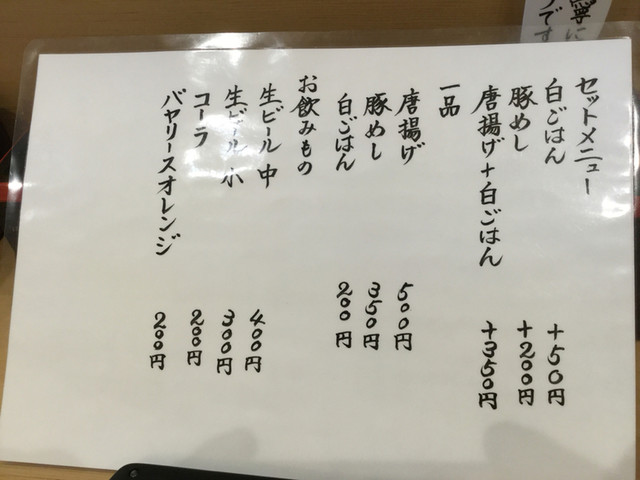 セットメニュー
白ごはん +50円
豚めし +200円
唐揚げ+白ごはん +350円
一品
唐揚げ 500円
豚めし 350円
白ごはん 200円
お飲みもの
生ビール 中 400円
生ビール 小 300円
コーラ 200円
バヤリースオレンジ 200円